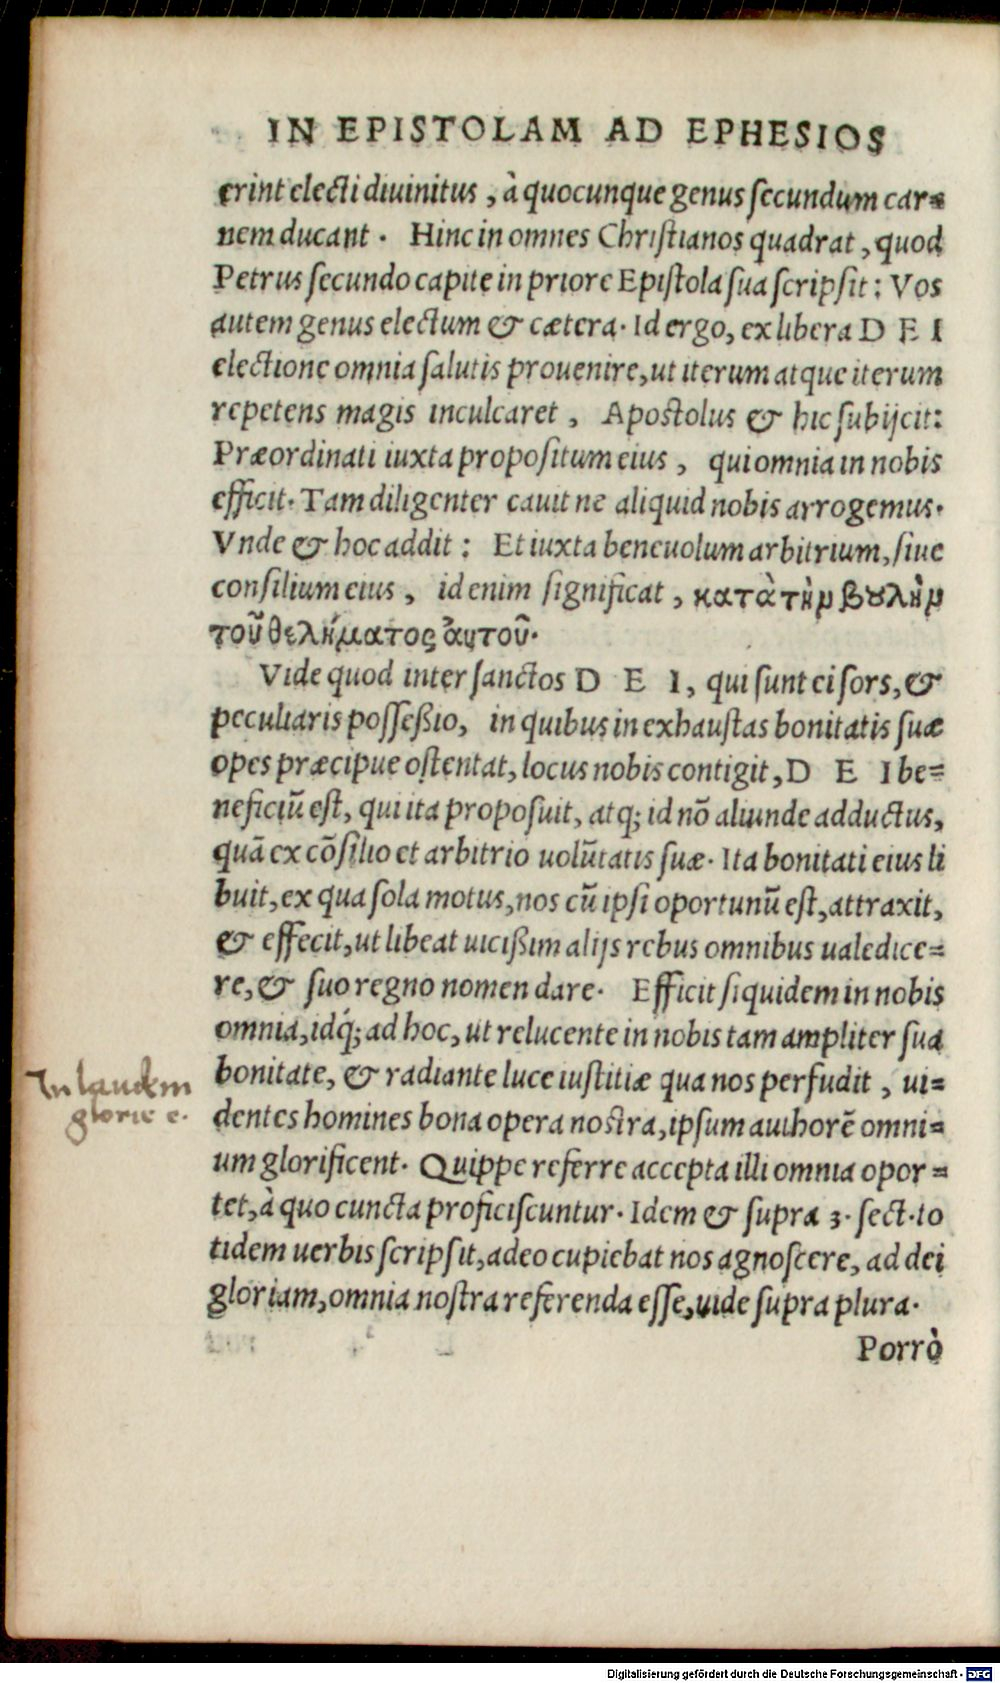 IN EPISTOLAM AD EPHESIOS
erint electi diuinitus, à quocunque genus secundum car=
nem ducant. Hinc in omnes Christianos quadrat, quod
Petrus secundo capite in priore Epistola sua scripsit: Vos
autem genus electum & cætera. Id ergo, ex libera D E I
electione omnia salutis prouenire, ut iterum atque iterum
repetens magis inculcaret, Apostolus & hic subijcit:
Præordinati iuxta propositum eius, qui omnia in nobis
efficit. Tam diligenter cauit ne aliquid nobis arrogemus.
Vnde & hoc addit: Et iuxta beneuolum arbitrium, siue
consilium eius, id enim significat, κατὰ τὴν βȣλὴν
τοῦ θελήματος ἁυτοῦ.
Vide quod inter sanctos D E I, qui sunt ei sors, &
peculiaris posseßio, in quibus inexhaustas bonitatis suæ
opes præcipue ostentat, locus nobis contigit, D E I be=
neficiū est, qui ita proposuit, atq; id nō aliunde adductus,
quā ex cōsilio et arbitrio uolūtatis suæ. Ita bonitati eius li
buit, ex qua sola motus, nos cū ipsi oportunū est, attraxit,
& effecit, ut libeat uicißim alijs rebus omnibus ualedice=
re, & suo regno nomen dare. Efficit siquidem in nobis
omnia, idq́; ad hoc, ut relucente in nobis tam ampliter sua
bonitate, & radiante luce iustitiæ qua nos perfudit, ui=
In laudem
glorie e.
dentes homines bona opera nostra, ipsum authorē omni=
um glorificent. Quippe referre accepta illi omnia opor=
tet, à quo cuncta proficiscuntur. Idem & supra 3. sect. to
tidem uerbis scripsit, adeo cupiebat nos agnoscere, ad dei
gloriam, omnia nostra referenda esse, uide supra plura.
Porrò
Digitalisierung gefördert durch die Deutsche Forschungsgemeinschaft - DFG